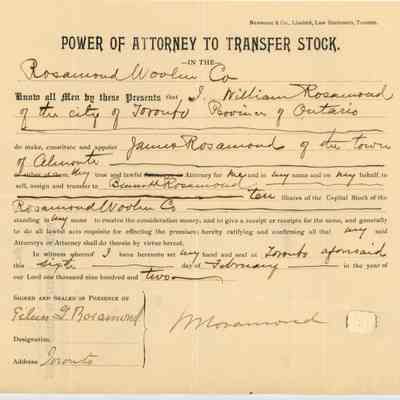 Newsome & Co., Limited, Law Stationers, Toronto.
POWER OF ATTORNEY TO TRANSFER STOCK.
—IN THE—
Rosamond Woolen Co
Know all Men by these Presents that I, William Rosamond
of the city of Toronto Province of Ontario
do make, constitute and appoint James Rosamond of the town
of Almonte
my true and lawful Attorney for me and in my name and on my behalf to
sell, assign and transfer to Bennett Rosamond
ten Shares of the Capital Stock of the
Rosamond Woolen Co
standing in my name to receive the consideration money, and to give a receipt or receipts for the same, and generally
to do all lawful acts requisite for effecting the premises; hereby ratifying and confirming all that my said
Attorneys or Attorney shall do therein by virtue hereof.
In witness whereof I have hereunto set my hand and seal at Toronto aforesaid
this sixth day of February in the year of
our Lord one thousand nine hundred and two
SIGNED AND SEALED IN PRESENCE OF
Rosamond
Designation,
Address Toronto
W Rosamond